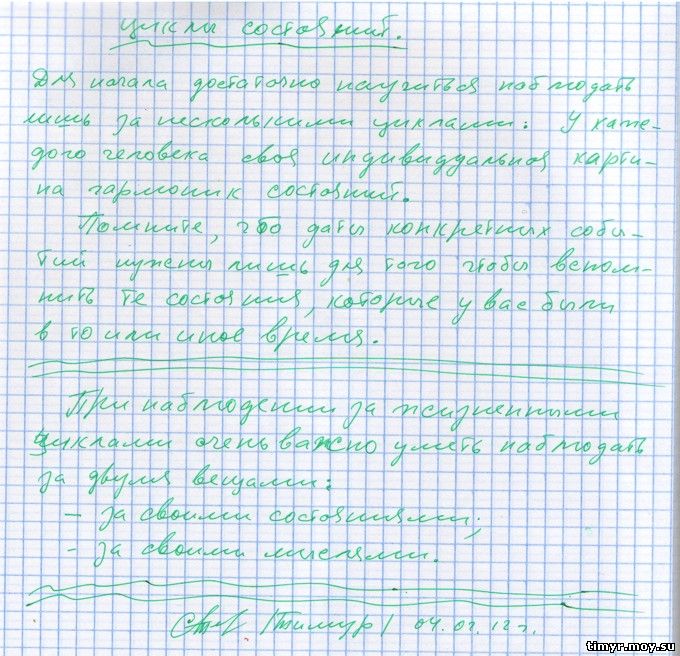 циклы состояний.
Для начала достаточно научиться наблюдать
лишь за несколькими циклами: У каж-
дого человека своя индивидуальная карти-
на гармоник состояний.
Помните, что даты конкретных собы-
тий нужны лишь для того чтобы вспом-
нить те состояния, которые у вас были
в то или иное время.
При наблюдении за жизненными
циклами очень важно уметь наблюдать
за двумя вещами:
- за своими состояниями;
- за своими мыслями.
/Тимур/ 04.02.12 г.
timyr.moy.su